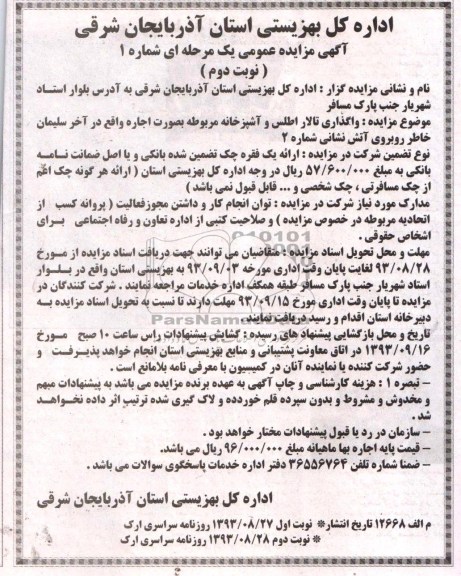 اداره کل بهزیستی استان آذربایجان شرقی
آگهی مزایده عمومی یک مرحله ای شماره ۱
( نوبت دوم )
نام و نشانی مزایده گزار : اداره کل بهزیستی استان آذربایجان شرقی به آدرس بلوار استـاد
شهریار جنب پارک مسافر
موضوع مزایده : واگذاری تالار اطلس و آشپزخانه مربوطه بصورت اجاره واقع در آخر سلیمان
خاطر روبروی آتش نشانی شماره ۲
نوع تضمین شرکت در مزایده : ارائه یک فقره چک تضمین شده بانکی و یا اصل ضمانت نـامـه
بانکی به مبلغ ۵۷/۶۰۰/۰۰۰ ریال در وجه اداره کل بهزیستی استان ( ارائه هر گونه چک اعّم
از چک مسافرتی ، چک شخصی و ... قابل قبول نمی باشد )
مدارک مورد نیاز شرکت در مزایده : توان انجام کار و داشتن مجوزفعالیت ( پروانه کسب از
اتحادیه مربوطه در خصوص مزایده ) و صلاحیت کتبی از اداره تعاون و رفاه اجتماعی برای
اشخاص حقوقی .
مهلت و محل تحویل اسناد مزایده : متقاضیان می توانند جهت دریافت اسناد مزایده از مـورخ
۹۳/۰۸/۲۸ لغایت پایان وقت اداری مورخه ۹۳/۰۹/۰۳ به بهزیستی استان واقع در بلـوار
استاد شهریار جنب پارک مسافر طبقه همکف اداره خدمات مراجعه نمایند . شرکت کنندگان در
مزایده تا پایان وقت اداری مورخ ۹۳/۰۹/۱۵ مهلت دارند تا نسبت به تحویل اسناد مزایده بـه
دبیرخانه استان اقدام و رسید دریافت نمایند.
تاریخ و محل بازگشایی پیشنهاد های رسیده : گشایش پیشنهادات راس ساعت ۱۰ صبح مـورخ
۱۳۹۳/۰۹/۱۶ در اتاق معاونت پشتیبانی و منابع بهزیستی استان انجام خواهد پذیـرفـت و
حضور شرکت کننده یا نماینده آنان در کمیسیون با معرفی نامه بلامانع است .
– تبصره ۱ : هزینه کارشناسی و چاپ آگهی به عهده برنده مزایده می باشد به پیشنهادات مبهم
و مخدوش و مشروط و بدون سپرده قلم خوردده و لاک گیری شده ترتیب اثر داده نخواهـد
شد .
– سازمان در رد یا قبول پیشنهادات مختار خواهد بود .
– قیمت پایه اجاره بها ماهیانه مبلغ ۹۶/۰۰۰/۰۰۰ ریال می باشد.
– ضمنا شماره تلفن ۳۶۵۵۶۷۶۴ دفتر اداره خدمات پاسخگوی سوالات می باشد .
اداره کل بهزیستی استان آذربایجان شرقی
م الف ۱۲۶۶۸ تاریخ انتشار* نوبت اول ۱۳۹۳/۰۸/۲۷ روزنامه سراسری ارک
* نوبت دوم ۱۳۹۳/۰۸/۲۸ روزنامه سراسری ارک